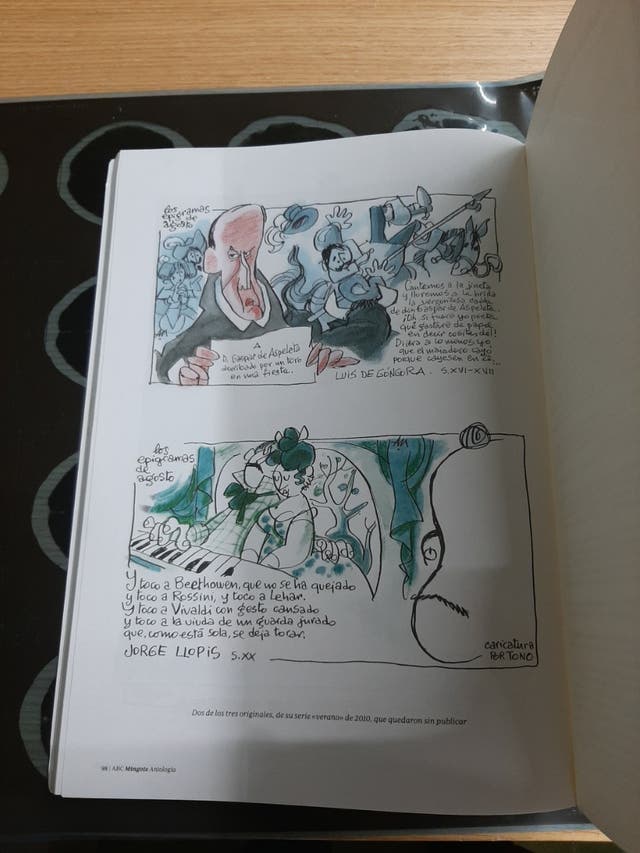 los
epigramas
de
agosto
A
D. Gaspar de Aspeleta
derribado por un toro
en una fiesta..
Cantemos a la jineta
y lloremos a la brida
la vergonzosa caída
de don Gaspar de Aspeleta.
¡Oh si fuera yo poeta,
qué gastara de papel
en decir cosites del!
Dijera a lo menos yo
que el majadero cayó
porque cayesen en
LUIS DE GÓNGORA. S.XVI-XVII
los
epigramas
de
agosto
Y toco a Beethowen, que no se ha quejado
y toco a Rossini, y toco a Lehar.
Y toco a Vivaldi con gesto cansado
y toco a la viuda de un guarda jurado
que, como está sola, se deja tocar.
JORGE LLOPIS S.XX
caricatura
POR TONO
Dos de los tres originales, de su serie «verano» de 2010, que quedaron sin publicar
98 | ABC Mingote Antología